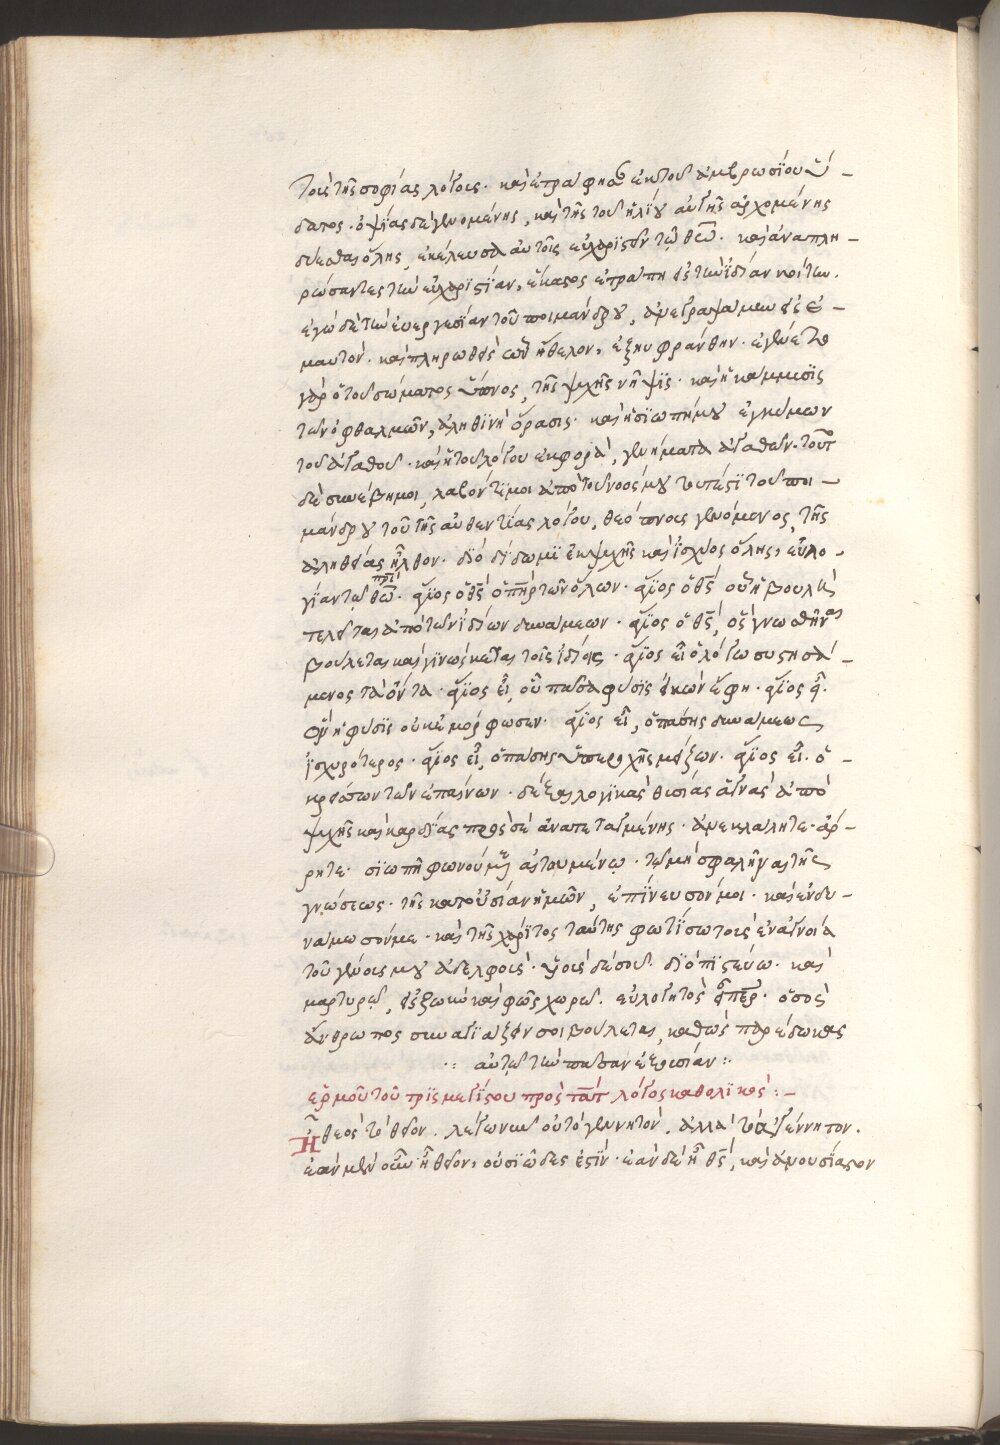 τοὺς τῆς σοφίας λόγους. καὶ ἐτράφησαν ἐκ τοῦ ἀμβρωσίου ὕ-
δατος. ὀψίας δὲ γενομένης, καὶ τῆς τοῦ ἡλίου αὐγῆς ἀρχομένης
δύεσθαι ὅλης, ἐκέλευσα αὐτοῖς εὐχαριστεῖν τῷ θεῶ. καὶ ἀναπλη-
ρώσαντες τὴν εὐχαριστίαν, ἕκαστος ἐτράπη εἰς τὴν ἰδίαν κοίτην.
ἐγὼ δὲ τὴν εὐεργεσίαν τοῦ ποιμάνδρου, ἀνεγραψάμην εἰς ἐ-
μαυτόν. καὶ πληρωθεὶς ὧν ἤθελον, ἐξηυφράνθην. ἐγένετο
γὰρ ὁ τοῦ σώματος ὕπνος, τῆς ψυχῆς νῆψις. καὶ ἡ κάμμυσις
τῶν ὀφθαλμῶν, ἀληθινὴ ὅρασις. καὶ ἡ σιωπή μου ἐγκύμων
τοῦ ἀγαθοῦ. καὶ ἡ τοῦ λόγου ἐκφορά, γενήματα ἀγαθῶν. τοῦτο
δὲ συνέβη μοι, λαβόντι μοι ἀπὸ τοῦ νοός μου τουτέστι τοῦ ποι-
μάνδρου τοῦ τῆς αὐθεντίας λόγου, θεόπνους γενόμενος, τῆς
ἀληθείας ἦλθον. διὸ δίδωμι ἐκ ψυχῆς καὶ ἰσχύος ὅλης, εὐλο-
γίαν τῷ πρὶ θεῶ. ἅγιος ὁ θς ὁ πὴρ τῶν ὅλων. ἅγιος ὁ θς, οὗ ἡ βουλὴ
τελεῖται ἀπὸ τῶν ἰδίων δυνάμεων. ἅγιος ὁ θς, ὃς γνωσθῆναι
βούλεται καὶ γινώσκεται τοῖς ἰδίοις. ἅγιος εἶ ὁ λόγω συστησά-
μενος τὰ ὄντα. ἅγιος εἶ, οὗ πᾶσα φύσις εἰκὼν ἔφη. ἅγιος εἶ.
ὃν ἡ φύσις οὐκ ἐμόρφωσεν. ἅγιος εἶ, ὁ πάσης δυνάμεως
ἰσχυρότερος. ἅγιος εἶ, ὁ πάσης ὑπεροχῆς μείζων. ἅγιος εἶ. ὁ
κρείσσων τῶν ἐπαίνων. δέξαι λογικὰς θυσίας ἁγνὰς ἀπὸ
ψυχῆς καὶ καρδίας πρὸς σὲ ἀνατεταμένης. ἀνεκλάλητε. ἄρ-
ρητε. σιωπῆ φωνούμενε αἰτουμένω. τῷ μὴ σφαλῆναι τῆς
γνώσεως. τῆς κατ οὐσίαν ἡμῶν, ἐπίνευσόν μοι. καὶ ἐνδυ-
νάμωσόν με. καὶ τῆς χάριτος ταύτης φωτίσω τοὺς ἐν ἀγνοία
τοῦ γένους μου ἀδελφοὺς. υἱοὺς δὲ σοῦ. διὸ πιστεύω. καὶ
μαρτυρῶ, εἰς ζωὴν καὶ φῶς χωρῶ. εὐλογητὸς εἶ πέρ. ὁ σὸς
ἄνθρωπος συναγιάζειν σοι βούλεται, καθὼς παρέδωκας
∴ αὐτῷ τὴν πᾶσαν ἐξουσίαν ∴
ἑρμοῦ τοῦ τρισμεγίστου πρὸς τὰτ λόγος καθολικός :–
Ἢ θεὸς τὸ θεῖον. λέγω νῦν οὐ τὸ γενητόν, ἀλλὰ τὸ ἀγέννητον.
ἐὰν μὲν οὖν ἦ θεῖον, οὐσιῶδες ἐστίν. ἐὰν δὲ ἦ θς, καὶ ἀνουσίαστον